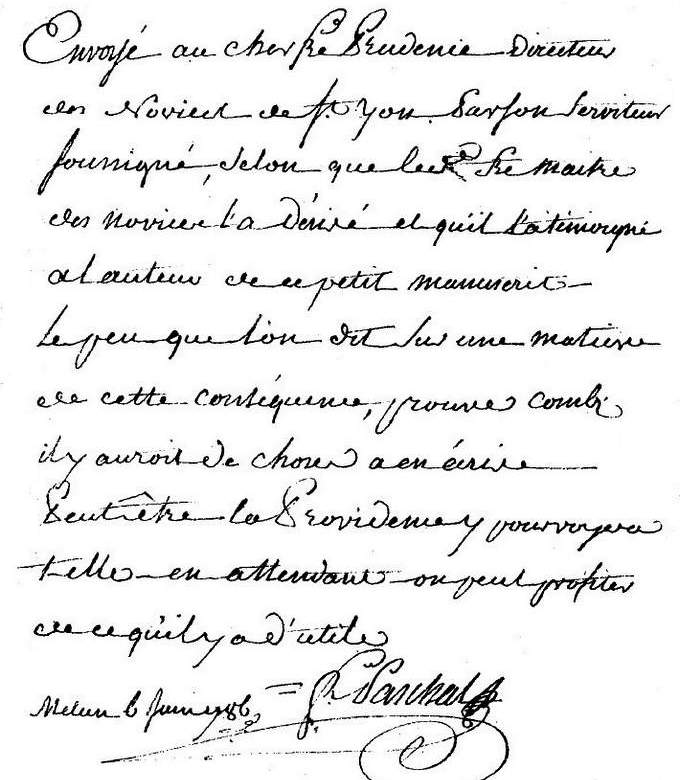 Envoyé au cher fre Prudence Directeur
des Novices de st. yon Par son serviteur
soussigné, selon que le Fre maitre
des novices l'a désiré et qu'il l'atémoigné
al'auteur de ce petit manuscrit
le peu que l'on dit sur une matiere
de cette conséquence, prouve combi
il y auroit de choses a en écrire
Peut être la Providence y pourvoyera
t-elle en attendant on peut profiter
de ce qu'il y a d'utile
Melun 6 Juin 1786 = fr. Paschal